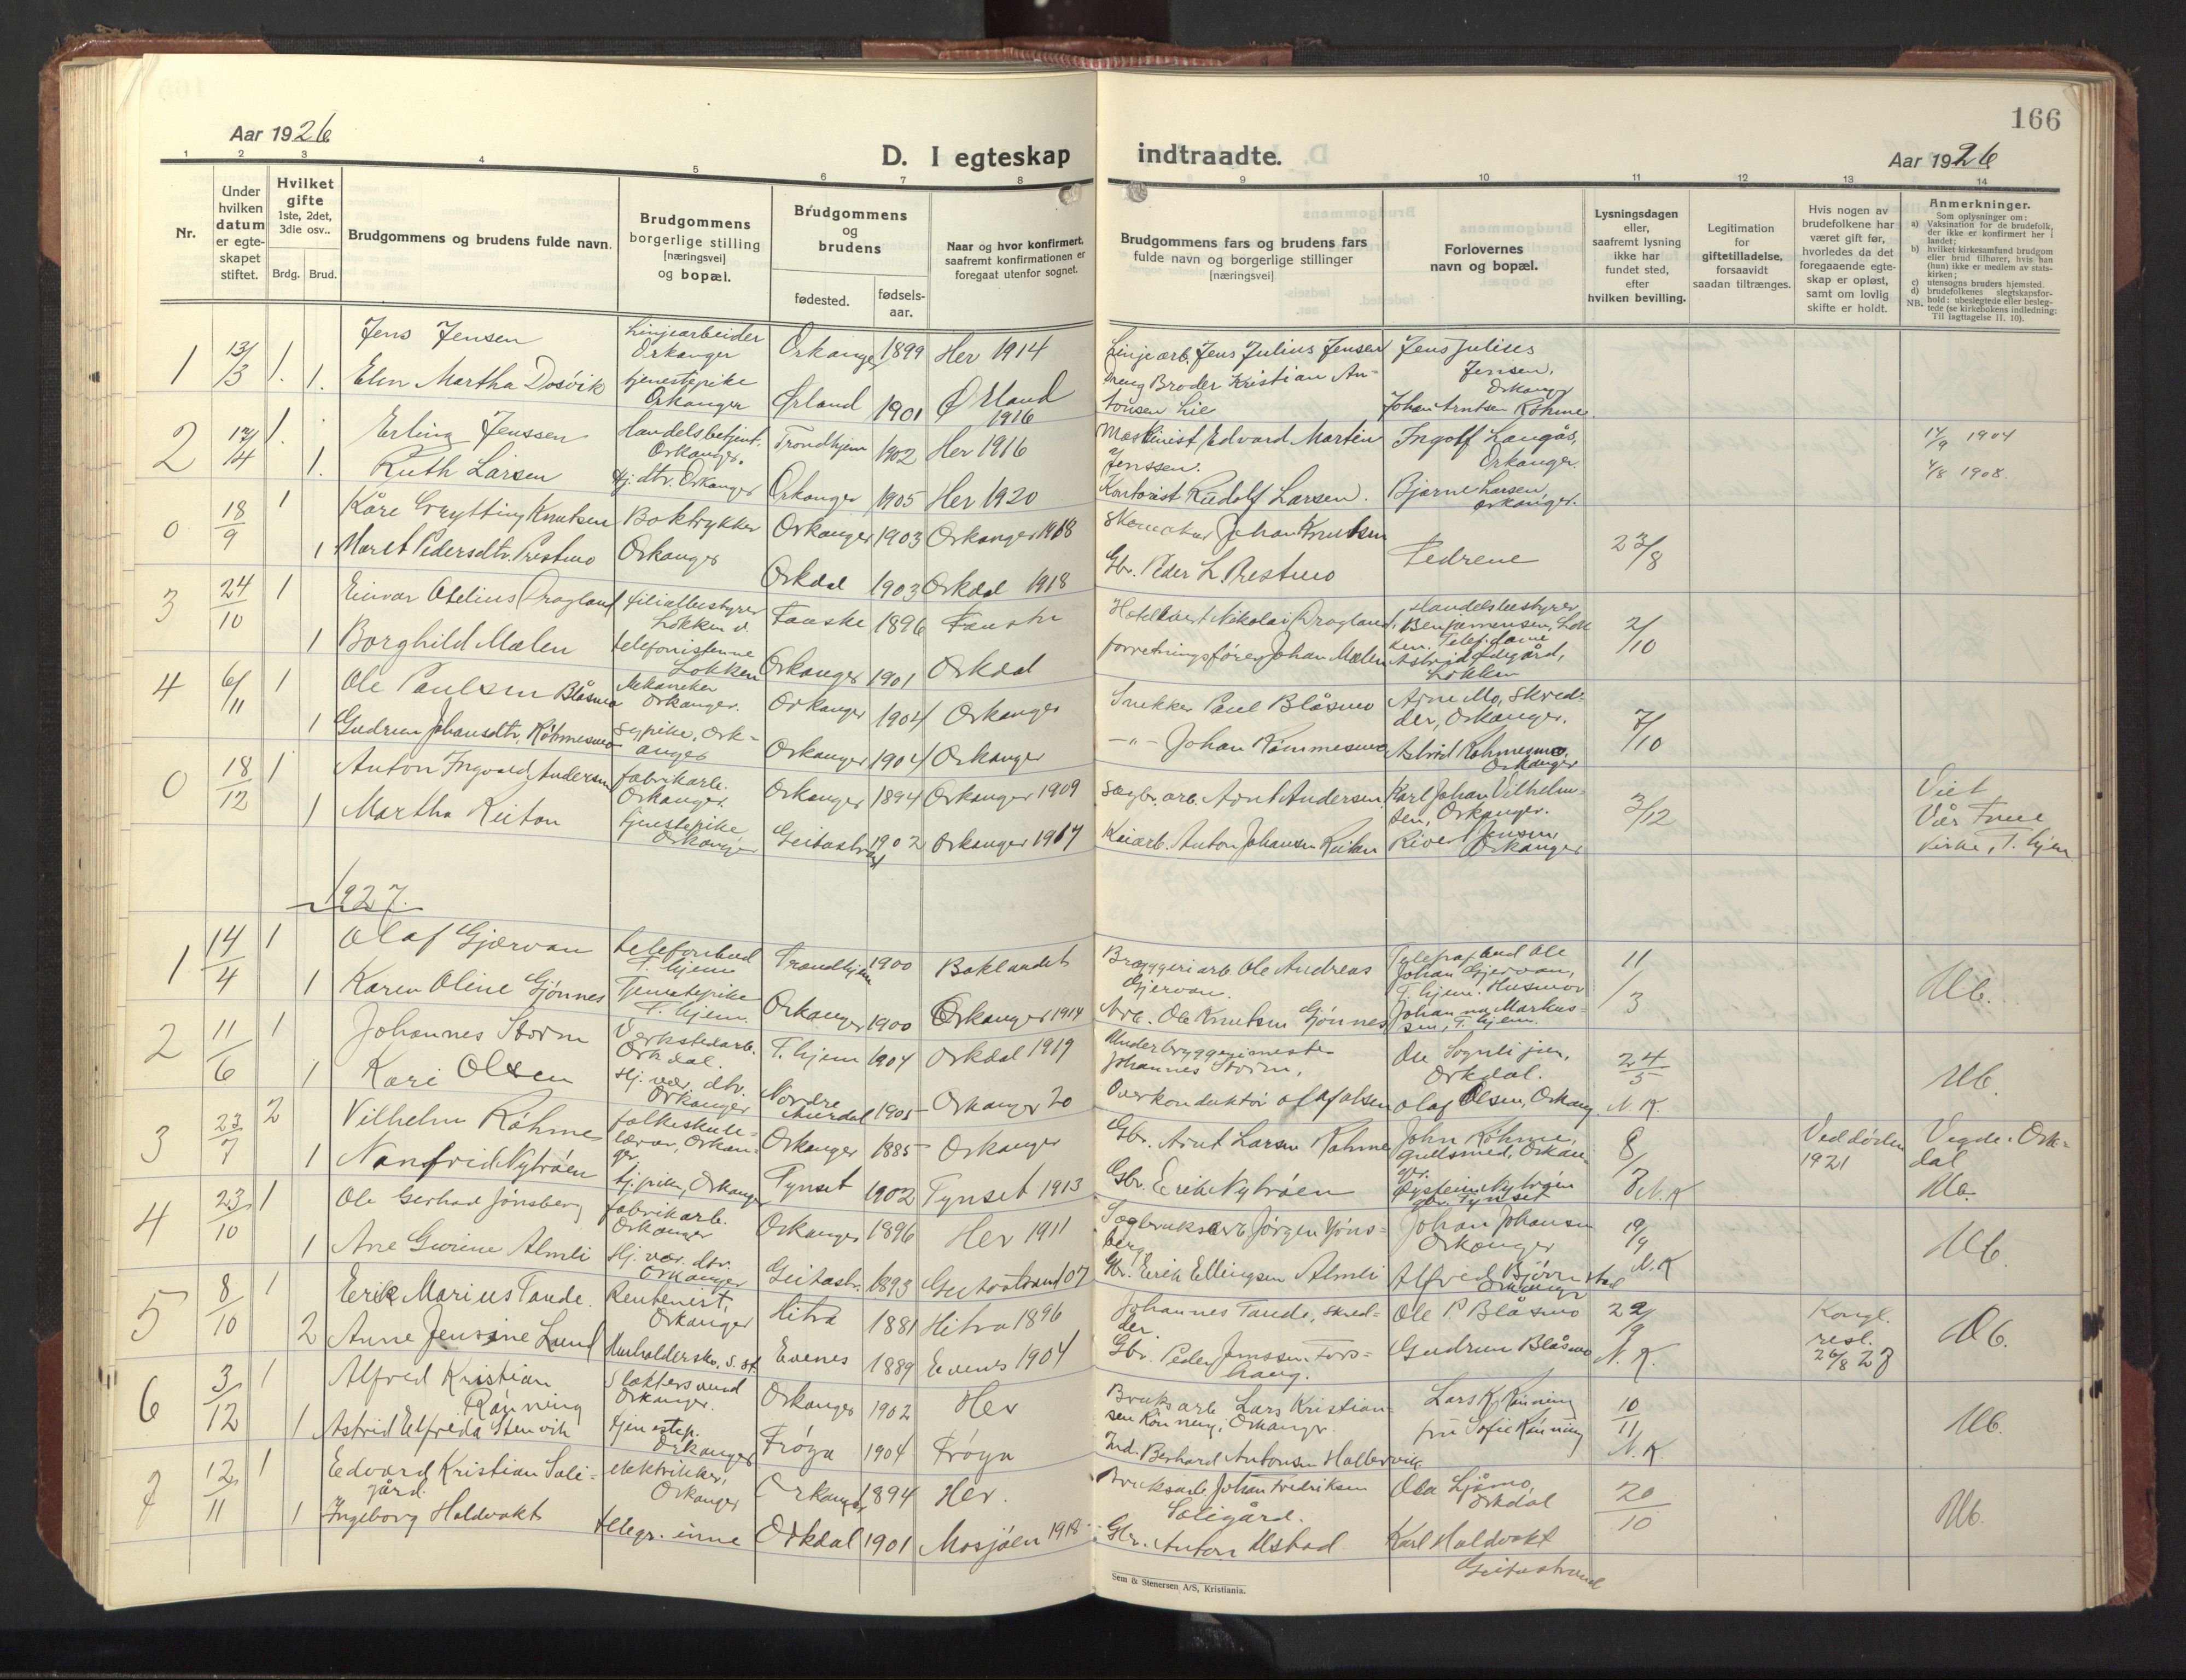 166
Aar 1926
D. I egteskap indtraadte.
Aar 1926
1 2 3 4 5 6 7 8 9 10 11 12 13 14
Nr.
Under hvilken datum er egteskapet stiftet.
Hvilket gifte 1ste, 2det, 3die osv..
Brdg. Brud.
Brudgommens og brudens fulde navn.
Brudgommens borgerlige stilling [næringsvei] og bopæl.
Brudgommens og brudens
fødested.
fødsels-aar.
Naar og hvor konfirmert, saafremt konfirmationen er foregaat utenfor sognet.
Brudgommens fars og brudens fars fulde navn og borgerlige stillinger [næringsvei]
Forlovernes navn og bopæl.
Lysningsdagen eller, saafremt lysning ikke har fundet sted, efter hvilken bevilling.
Legitimation for giftetilladelse, forsaavidt saadan tiltrænges.
Hvis nogen av brudefolkene har været gift før, hvorledes da det foregaaende egteskap er opløst, samt om lovlig skifte er holdt.
Anmerkninger.
Som oplysninger om:
a) Vaksination for de brudefolk, der ikke er konfirmert her i landet;
b) hvilket kirkesamfund brudgom eller brud tilhører, hvis han (hun) ikke er medlem av statskirken;
c) utensogns bruders hjemsted.
d) brudefolkenes slegtskapsforhold: ubeslegtede eller beslegtede (se kirkebokens indledning: Til iagttagelse II, 10).
NB.
1 13/3 1. Jens Jensen Linjearbeider Orkanger Orkanger 1899 Her 1914 Linjearb. Jens Julius Jensen Jens Julius Jensen, Orkanger
1. Elen Martha Dosvik tjenestepike Orkanger Ørland 1901 Ørland 1916 Broder Kristian Antonsen Lie Johan Arntsen Rohme.
2 17/4 1. Erling Jenssen Handelsbetjent, Orkanger. Trondhjem 1902 Her 1916 Maskinist Edvard Martin Jenssen. Ingolf Langås, Orkanger. 14/9 1904
1. Ruth Larsen Hj. dtr. Orkanger Orkanger 1905 Her 1920 Kontorist Rudolf Larsen. Bjarne Larsen Orkanger. 4/8 1908.
0 18/9 1 Kåre Grytting Knutsen Boktrykker Orkanger Orkanger 1903 Orkanger 1918 Skomaker Johan Knutsen Fedrene 23/8
1 Maret Pedersdtr. Prestmo Orkdal 1903 Orkdal 1918 Gbr. Peder L. Prestmo
3 24/10 1 Einar Otelius Dragland filialbestyrer Løkken v. Fauske 1896 Fauske Hotelvert Nikolai Dragland, Handelsbestyrer Benjaminsen, Løkken. 2/10
1 Borghild Mælen telefonistinne Løkken Orkanger 1901 Orkdal forretningsfører Johan Mælen Telef.dame Astrid Ødegård, Løkken
4 6/11 1 Ole Paulsen Blåsmo Mekaniker Orkanger. Orkanger 1904 Orkanger Snekker Paul Blåsmo Arne Mo, skredder, Orkanger. 7/10
1 Gudrun Johansdtr. Röhmesmo sypike, Orkanger Orkanger 1904 Orkanger —"— Johan Römmesmo Astrid Röhmesmo, Orkanger
0 18/12 1 Anton Ingvald Andersen fabrikarb. Orkanger. Orkanger 1894 Orkanger 1909 Sagbr. arb. Arnt Andersen Karl Johan Vilhelmsen, Orkanger. 3/12 Viet Vår Frue kirke, T. hjem
1 Martha Keiton tjenstepike Orkanger Geitastrand 1902 Orkanger 1917 Keiarb. Anton Johansen Jensen Orkanger
1927.
1 14/4 1 Olaf Gjærvan telefonbud T. hjem Trondhjem 1900 Baklandet Bryggeriarb Ole Andreas Gjervan. Telegrafbud Ole Johan Gjervan, T. hjem. 11/3 Ub.
1 Karen Oline Gjönnes Tjenstepike T. hjem. Orkanger 1900 Orkanger 1914 Arb. Ole Knutsen Gjönnes Husmor Johanna Markussen, T. hjem.
2 11/6 1 Johannes Storm Verkstedarb. Orkdal. T. hjem 1904 Orkdal 1919 Underbryggerimester Johannes Storm, Ole Sognli jun, Orkdal. 24/5 N. K. Ub.
1 Kari Olsen Hj. vær. dtr. Orkanger Nordre Aurdal 1905 Orkanger 20 Overkonduktör Olaf Olsen Olaf Olsen, Orkang
3 23/7 2 Vilhelm Röhme folkeskulelærer, Orkanger. Orkanger 1885 Orkanger Gbr. Arnt Larsen Röhme John Röhme, gullsmed, Orkanger. 8/7 N. K Ved döden 1921 Vegde. Orkdal Ub.
1 Nanfrid Nybröen tj. pike, Orkanger Tynset 1902 Tynset 1913 Gbr. Erik Nybröen Øystein Nybröen gbr. Tynset
4 23/10 1 Ole Gerhard Jönsberg fabrikarb. Orkanger Orkanger 1896 Her 1911 Sagbruksarb Jørgen Hjönsberg Johan Johansen Orkanger 19/9 N. K Ub.
1 Ane Gurine Almli Hj. vær. dtr. Orkanger Geitastr. 1893 Geitastrand 07 Gbr. Erik Ellingsen Almli Alfred Björnstad Orkanger
5 8/10 1 Erik Marius Tande. Rentenist, Orkanger Hitra 1881 Hitra 1896 Johannes Tande, skredder. Ole P. Blåsmo 22/9 N. K. Kongl. resl. 26/8 27 Ub.
2 Anne Jensine Lund Evenes 1889 Evenes 1904 Gbr. Peder Jenssen Forshaug. Gudrun Blåsmo
6 3/12 1 Alfred Kristian Rönning Slaktersvend Orkanger. Orkanger 1902 Her Bruksarb Lars Kristiansen Rönning, Orkanger. Lars K. Rönning 10/11 N. K. Ub.
1 Astrid Elfrida Stenvik tjenestep. Orkanger Fröya 1904 Fröya Ind. Berhard Antonsen Hallervik fru Sofie Rönning
7 12/11 1 Edvard Kristian Soligård. elektriker, Orkanger Orkanger 1894 Her. Bruksarb. Johan Fredriksen Soligård. Ola Ljåmo, Orkdal 20/10 Ub.
1 Ingeborg Holdvakt telegr. inne Orkdal 1901 Mosjöen 1918. Gbr. Anton Ustad Karl Holdvakt Geitastrand
Sem & Stenersen A/S, Kristiania.